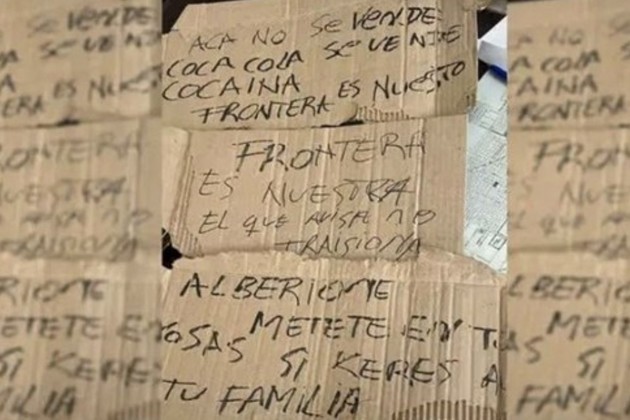 ACA NO SE VENDE
COCA COLA SE VENDE
COCAINA
FRONTERA ES NUESTO
FRONTERA
ES NUESTRA
EL QUE AVISA NO
TRAISIONA
ALBERIONE
METETE EN T
TOSAS
SI KERES A
TU FAMILIA